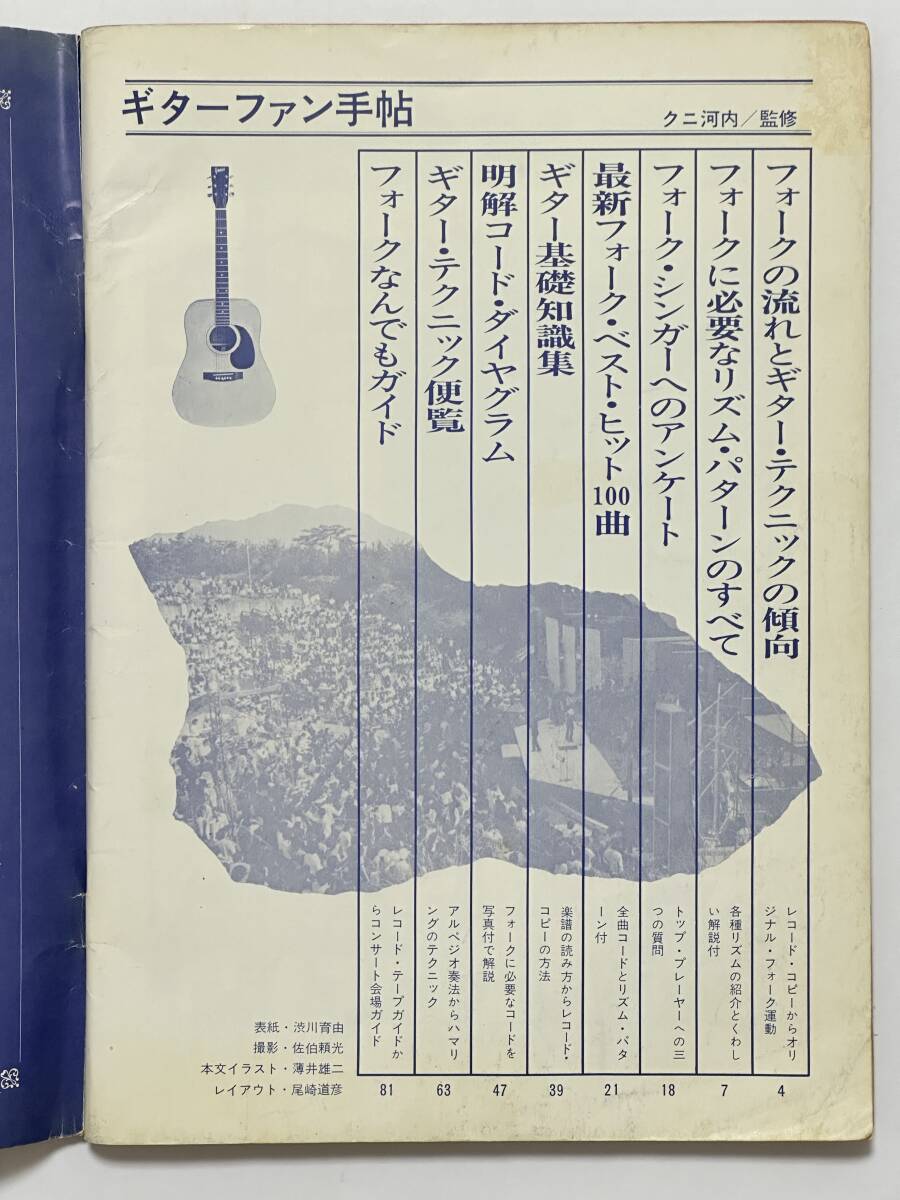 ギターファン手帖
クニ河内/監修
フォークの流れとギター・テクニックの傾向
レコード・コピーからオリ
ジナル・フォーク運動
4
フォークに必要なリズム・パターンのすべて
各種リズムの紹介とくわし
い解説付
7
フォーク・シンガーへのアンケート
トップ・プレーヤーへの三
つの質問
18
最新フォーク・ベスト・ヒット100曲
全曲コードとリズム・パタ
ーン付
21
ギター基礎知識集
楽譜の読み方からレコード・
コピーの方法
39
明解コード・ダイヤグラム
フォークに必要なコードを
写真付で解説
47
ギター・テクニック便覧
アルペジオ奏法からハマリ
ングのテクニック
63
フォークなんでもガイド
レコード・テープガイドか
らコンサート会場ガイド
81
表紙・渋川育由
撮影・佐伯頼光
本文イラスト・薄井雄二
レイアウト・尾崎道彦